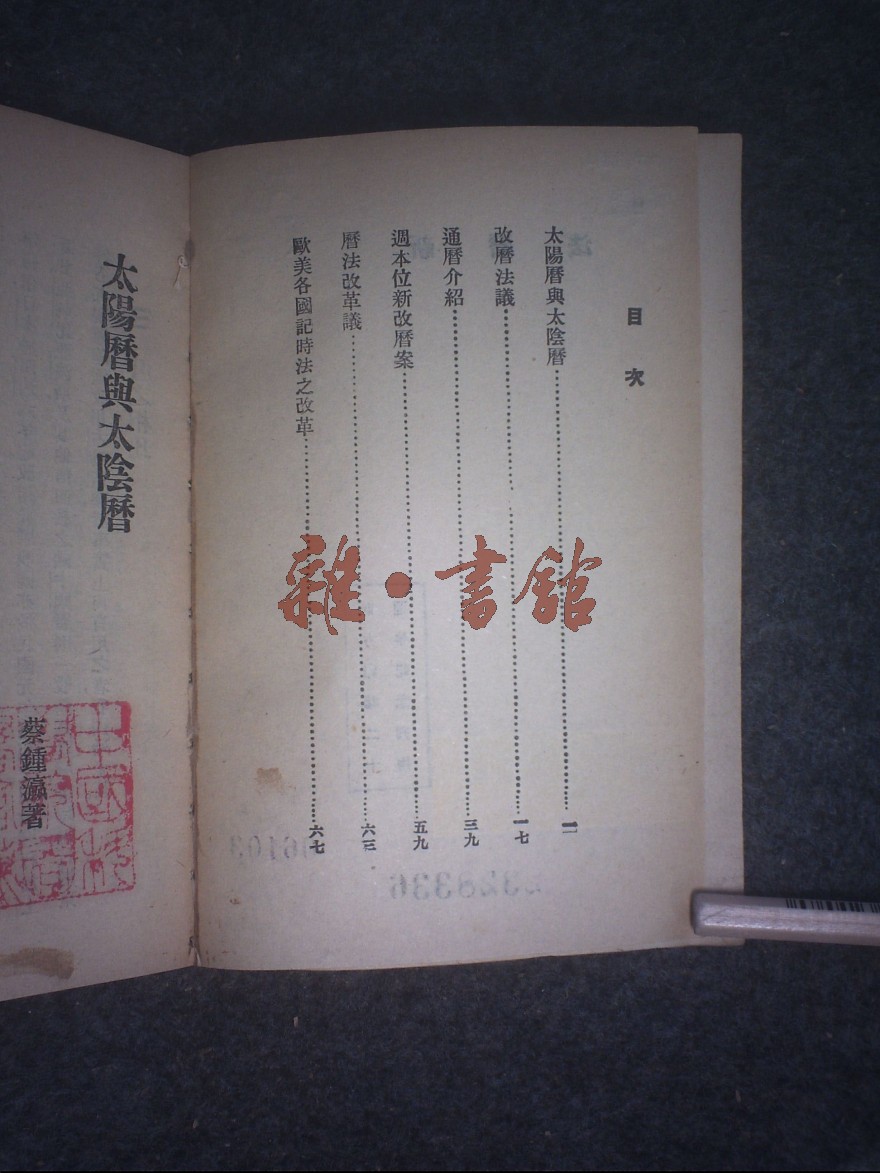 目次
太陽曆與太陰曆……一
改曆法議……一七
通曆介紹……三九
週本位新改曆案……五九
曆法改革議……六三
歐美各國記時法之改革……六七
太陽曆與太陰曆
蔡鍾瀛著
雜·書館